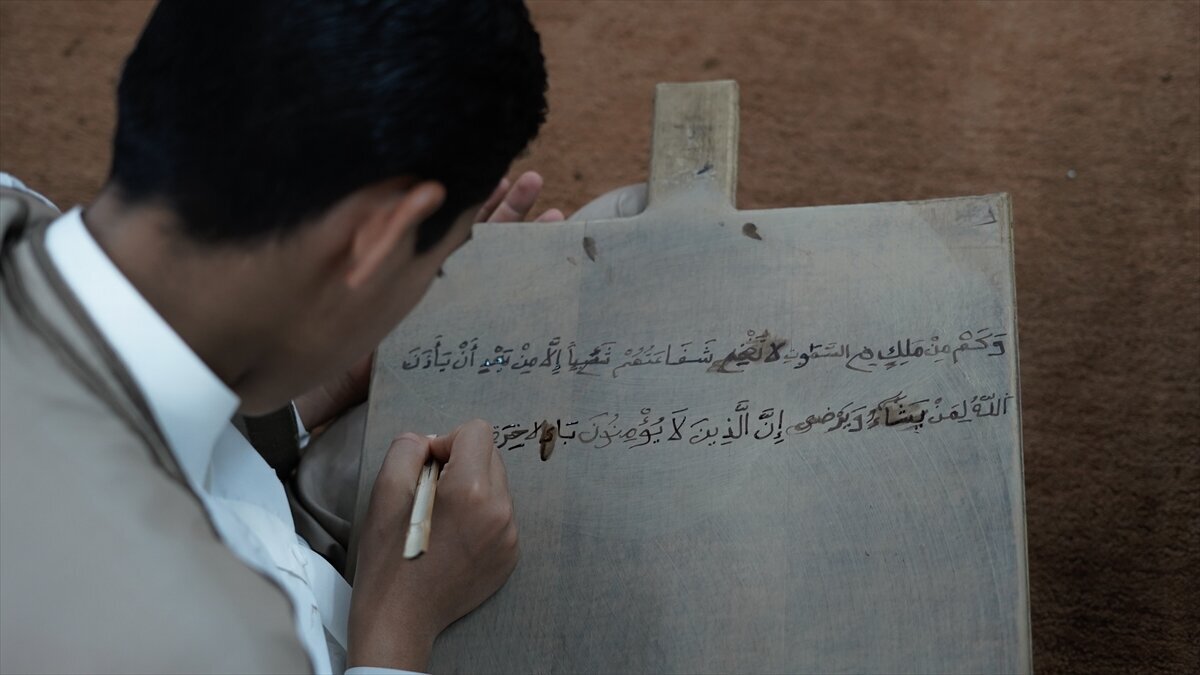 وَكَم مِّن مَّلَكٍ فِي السَّمَٰوَٰتِ لَا تُغْنِي شَفَٰعَتُهُمْ شَيْـًٔا إِلَّا مِنۢ بَعْدِ أَنْ يَأْذَنَ
اَللَّهُ لِمَنْ يَّشَآءُ وَيَرْضَىٰ إِنَّ الَّذِينَ لَا يُؤْمِنُونَ بِالَاخِرَةِ